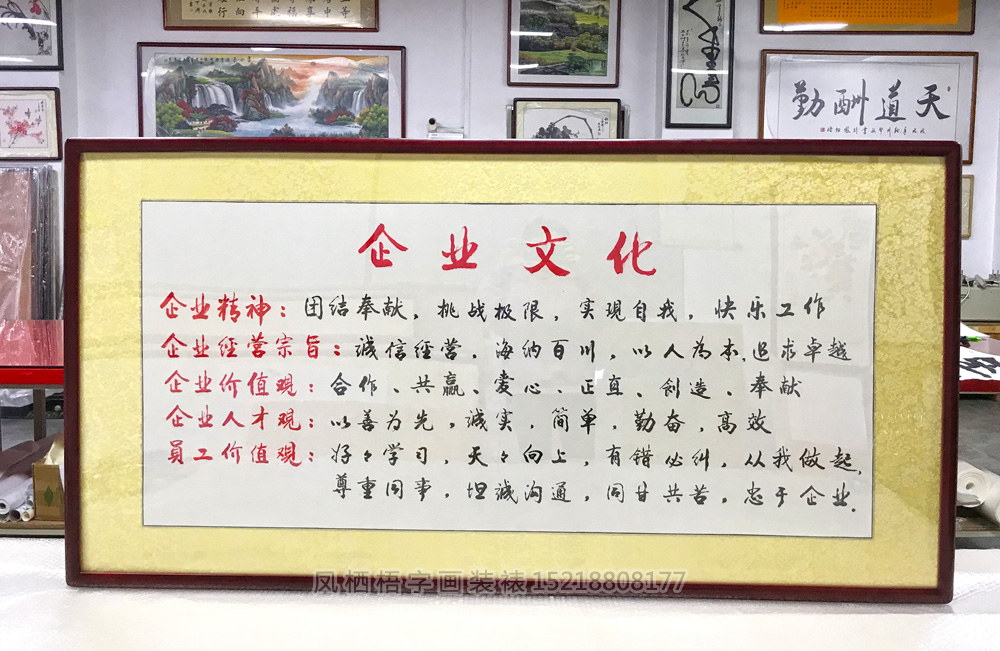 天道酬勤
企业文化
企业精神：团结奉献，挑战极限，实现自我，快乐工作
企业经营宗旨：诚信经营，海纳百川，以人为本，追求卓越
企业价值观：合作、共赢、爱心、正直、创造、奉献
企业人才观：以善为先，诚实，简单，勤奋，高效
員工价值观：好々学习，天々向上，有错必纠，从我做起，
尊重同事，坦诚沟通，同甘共苦，忠于企业.
凤栖梧字画装裱15218808177